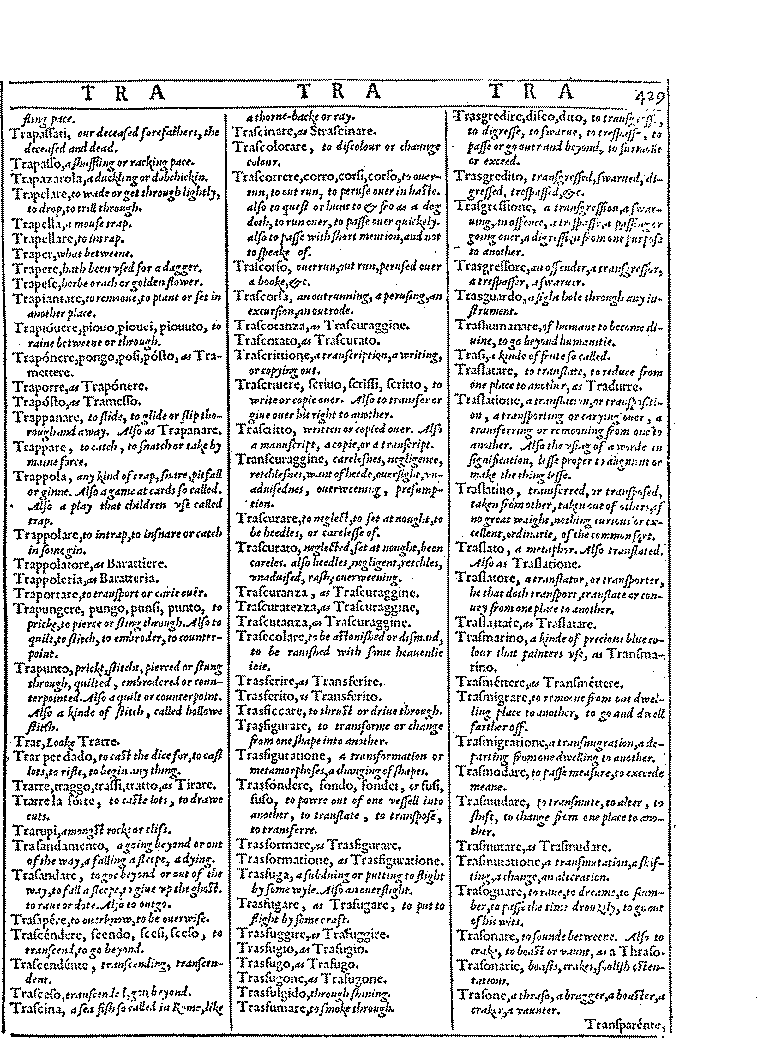 T R A
T R A
T R A
429
fling pace.
Trapassati, our deceased forefathers, the
deceased and dead.
Trapasso, a shuffling or racking pace.
Trapazarola, a duckling or dabchickin.
Trapelare, to wade or get through lightly,
to drop, to trill through.
Trapella, a mouse trap.
Trapellare, to intrap.
Traper, what betweene.
Trapere, hath been vsed for a dagger.
Trapese, herbe orach or golden flower.
Trapiantare, to remoue, to plant or set in
another place.
Trapiouere, piouo, piouei, piouuto, to
raine betweene or through.
Trapónere, pongo, posi, pósto, as Tra-
mettere.
Traporre, as Trapónere.
Trapósto, as Tramesso.
Trappanare, to slide, to glide or slip tho-
rough and away. Also as Trapanare.
Trappare, to catch, to snatch or take by
maine force.
Trappola, any kind of trap, snare, pitfall
or ginne. Also a game at cards so called.
Also a play that children vse called
trap.
Trappolare, to intrap, to insnare or catch
in some gin.
Trappolatore, as Barattiere.
Trappoleria, as Baratteria.
Traportare, to transport or carie ouer.
Trapungere, pungo, punsi, punto, to
pricke, to pierce or sting through. Also to
quilt, to stitch, to embroder, to counter-
point.
Trapunto, prickt, stitcht, pierced or stung
through, quilted, embrodered or coun-
terpointed. Also a quilt or counterpoint.
Also a kinde of stitch, called hollowe
stitch.
Trar, Looke Trarre.
Trar per dado, to cast the dice for, to cast
lots, to rifle, to begin any thing.
Trarre, traggo, trassi, tratto, as Tirare.
Trarre la sorte, to caste lots, to drawe
cuts.
Trarupi, amongst rocks or clifs.
Trasandamento, a going beyond or out
of the way, a falling a sleepe, a dying.
Trasandare, to goe beyond or out of the
way, to fall a sleepe, to giue vp the ghost,
to raue or dote. Also to outgo.
Trasapére, to ouerknow, to be ouerwise.
Trascéndere, scendo, scesi, sceso, to
transcend, to go beyond.
Trascendénte, transcending, transcen-
dent.
Trasceso, transcended, gon beyond.
Trascina, a sea fish so called in Rome, like
a thorne-backe or ray.
Trascinare, as Strascinare.
Trascolorare, to discolour or change
colour.
Trascorrere, corro, corsi, corso, to ouer-
run, to out run, to peruse ouer in haste.
also to quest or hunt to & fro as a dog
doth, to run ouer, to passe ouer quickely.
also to passe with short mention, and not
to speake of.
Trascorso, ouerrun, out run, perused ouer
a booke, &c.
Trascorsa, an outrunning, a perusing, an
excursion, an outrode.
Trascotanza, as Trascuraggine.
Trascotato, as Trascurato.
Trascrittione, a transcription, a writing,
or copying out.
Trascriuere, scriuo, scrissi, scritto, to
write or copie ouer. Also to transfer or
giue ouer his right to another.
Trascritto, written or copied ouer. Also
a manuscript, a copie, or a transcript.
Trascuraggine, carelesnes, negligence,
retchlesnes, want of heede, ouersight, vn-
aduisednes, ouerweening, presump-
tion.
Trascurare, to neglect, to set at nought, to
be heedles, or carelesse of.
Trascurato, neglected, set at nought, been
careles. also heedles, negligent, retchles,
vnaduised, rash, ouerweening.
Trascuranza, as Trascuraggine.
Trascuratezza, as Trascuraggine,
Trascutanza, as Trascuraggine.
Trasecolare, to be astonished or dismaid,
to be rauished with some heauenlie
ioie.
Trasferire, as Transferire.
Trasferito, as Transferito.
Trasficcare, to thrust or driue through.
Trasfigurare, to transforme or change
from one shape into another.
Trasfiguratione, a transformation or
metamorphoses, a changing of shapes.
Trasfóndere, fondo, fondei, or fusi,
fuso, to powre out of one vessell into
another, to translate, to transpose,
to transferre.
Trasformare, as Trasfigurare.
Trasformatione, as Trasfiguratione.
Trasfuga, a subduing or putting to flight
by some wyle. Also an ouerflight.
Trasfugare, as Trafugare, to put to
flight by some craft.
Trasfuggire, as Trafuggire.
Trasfugio, as Trafugio.
Trasfugo, as Trafugo.
Trasfugone, as Trafugone.
Trasfulgido, through shining.
Trasfumare, to smoke through.
Trasgredire, disco, dito, to transgresse,
to digresse, to swarue, to trespasse, to
passe or go out and beyond, to surmount
or exceed.
Trasgredito, transgressed, swarued, di-
gressed, trespassed, &c.
Trasgressione, a transgression, a swar-
uing, an offence, a trespasse, a passage or
going ouer, a digression from one purpose
to another.
Trasgressore, an offender, a transgressor,
a trespasser, a swaruer.
Trasguardo, a sight hole through any in-
strument.
Trashumanare, of humane to become di-
uine, to go beyond humanitie.
Trasi, a kinde of fruite so called.
Traslatare, to translate, to reduce from
one place to another, as Tradurre.
Traslatione, a translation, or transpositi-
on, a transporting or carying ouer, a
transferring or remouing from one to
another. Also the vsing of a worde in
signification, lesse proper to augment or
make the thing lesse.
Traslatino, transferred, or transposed,
taken from other, taken out of others, of
no great waight, nothing curious or ex-
cellent, ordinarie, of the common sort.
Traslato, a metapher. Also translated.
Also as Traslatione.
Traslatore, a translator, or transporter,
he that doth transport, translate or con-
uey from one place to another.
Traslattare, as Traslatare.
Trasmarino, a kinde of precious blue co-
lour that painters vse, as Transma-
rino.
Trasméttere, as Transméttere.
Trasmigrare, to remoue from out dwel-
ling place to another, to go and dwell
farther off.
Trasmigratione, a transmigration, a de-
parting from one dwelling to another.
Trasmodare, to passe measure, to exceede
meane.
Trasmudare, to transmute, to alter, to
shift, to change from one place to ano-
ther.
Trasmutare, as Trasmudare.
Trasmutatione, a transmutation, a shif-
ting, a change, an alteration.
Trasognare, to raue, to dreame, to slum-
ber, to passe the time drouzily, to go out
of his wits.
Trasonare, to sounde betweene. Also to
crake, to boast or vaunt, as a Thraso.
Trasonarie, boasts, crakes, foolish osten-
tations.
Trasone, a thraso, a bragger, a boaster, a
craker, a vaunter.
Transparénte,